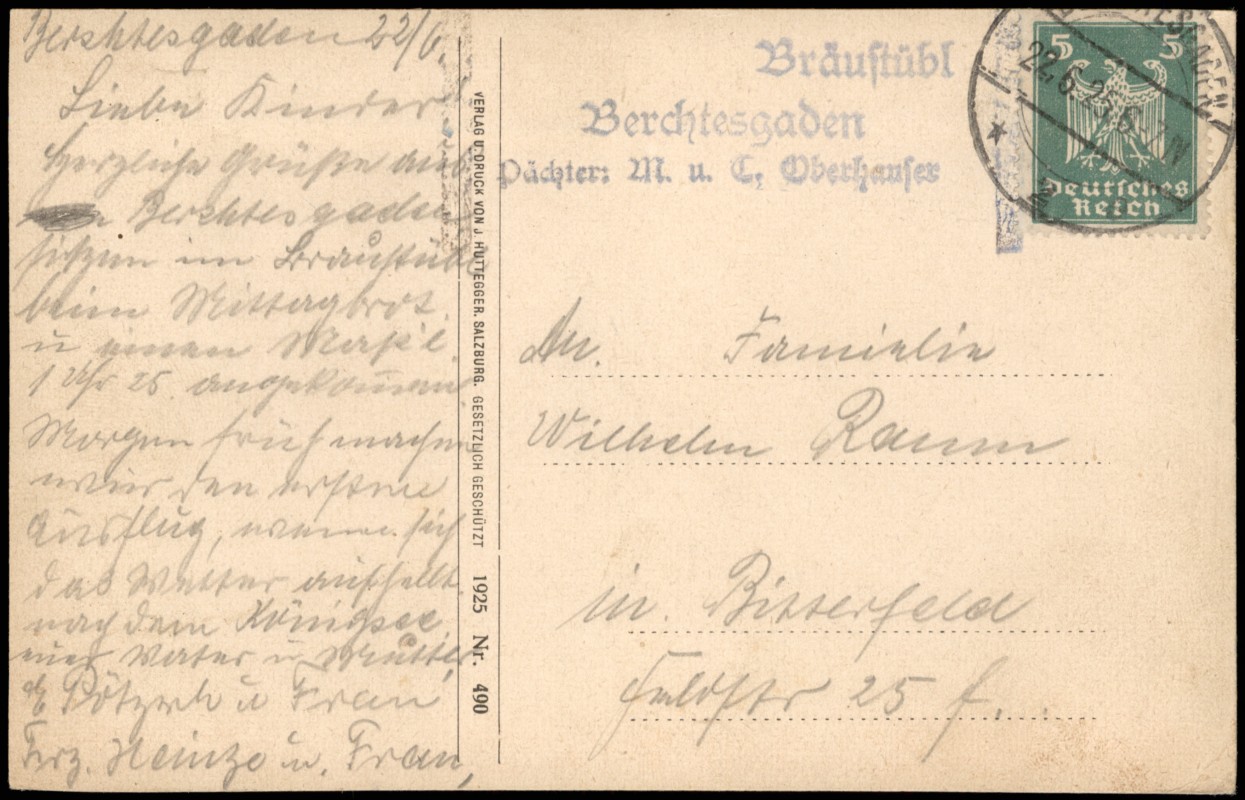 Berchtesgaden 22/6.
Liebe Kinder
Herzliche Grüße aus
Berchtesgaden
sitzen im Braustübl
beim Mittagbrot
u einen Maß'l.
1 Uhr 25. angekomen
Morgen früh machen
wir den ersten
Ausflug, wenn sich
das Wetter aufhellt
nach dem Königsee
Vater u Mutter
u Frau
Heinze u. Frau,
VERLAG U. DRUCK VON J. HUTTEGGER. SALZBURG. GESETZLICH GESCHÜTZT 1925 Nr. 490
Bräustübl
Berchtesgaden
Pächter: M. u. C. Oberhauser
5 5
Deutsches
Reich
BERCHTESGADEN
22.6.25.6-7N
An. Familie
Wilhelm Raum
in. Bitterfeld
Feldstr 25 f.